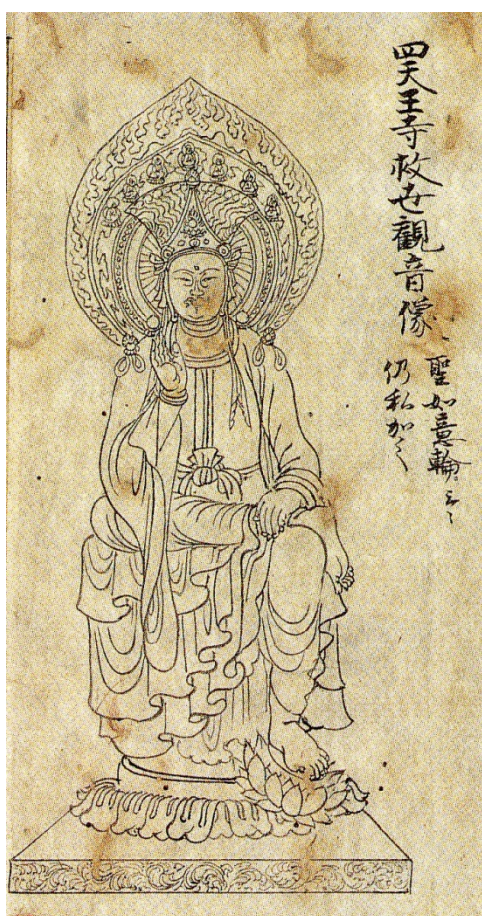 四天王寺救世觀音像
聖如意輪云々
仍私加之